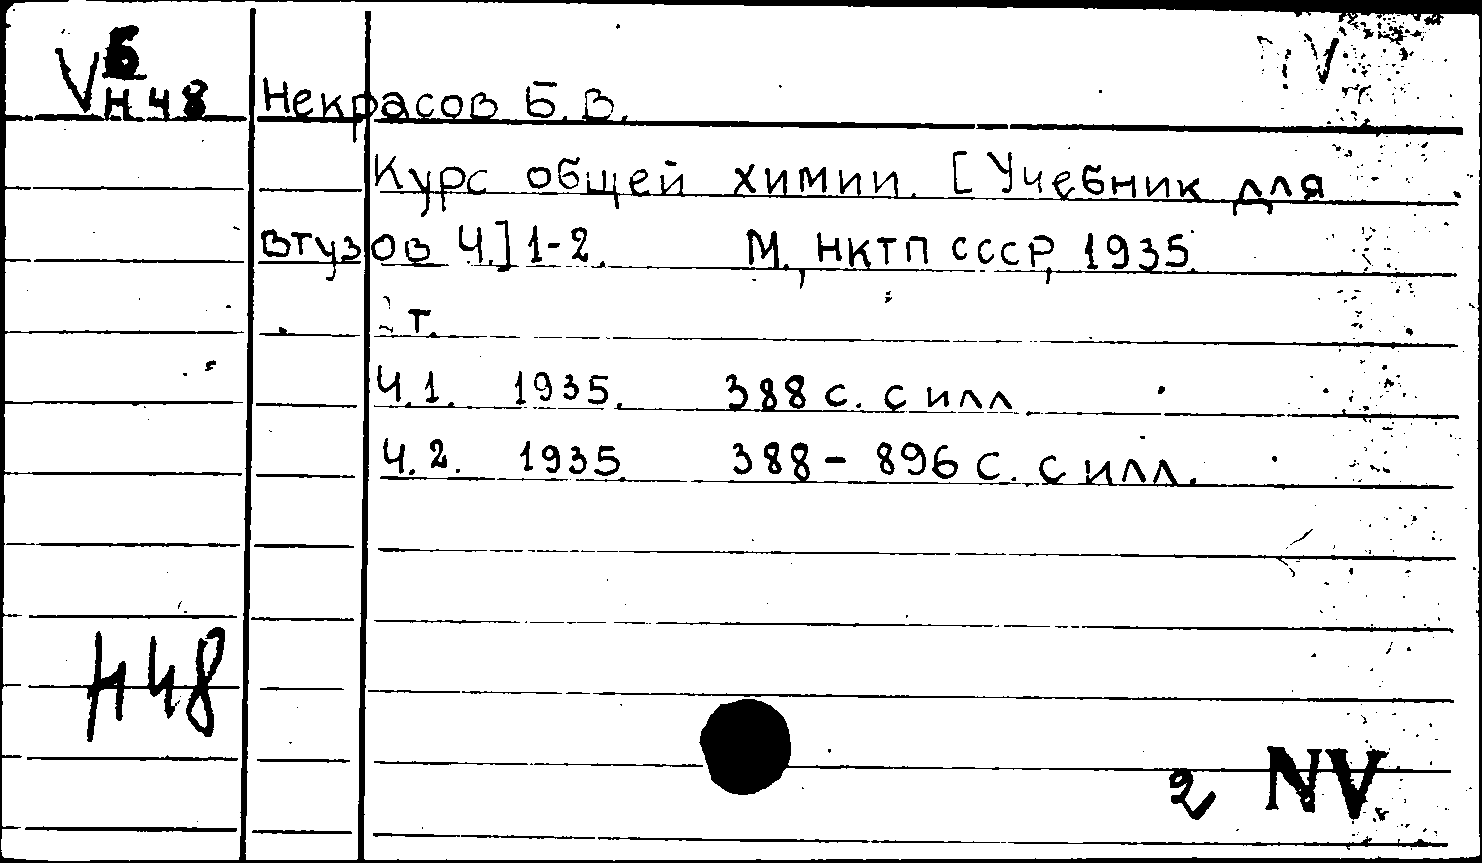 V Б
Н48 Некрасов Б.В. NV
Курс общей химии. [Учебник для
втузов Ч.] 1-2. М., НКТП СССР, 1935.
т.
Ч.1. 1935. 388 с. с илл
Ч.2. 1935. 388 - 896 с. с илл.
Н48
2 NV